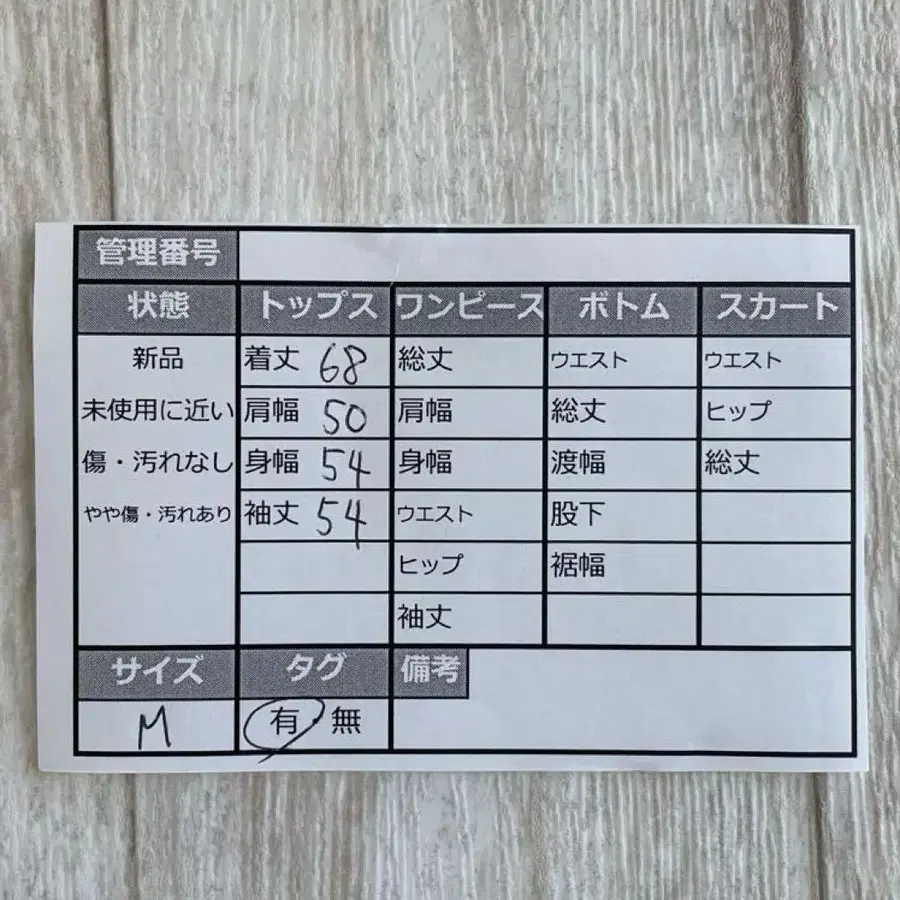 管理番号
状態 トップス ワンピース ボトム スカート
新品 着丈 68 総丈 ウエスト ウエスト
未使用に近い 肩幅 50 肩幅 総丈 ヒップ
傷・汚れなし 身幅 54 身幅 渡幅 総丈
やや傷・汚れあり 袖丈 54 ウエスト 股下
ヒップ 裾幅
袖丈
サイズ タグ 備考
M 有・無